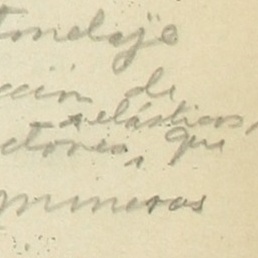 tonelaje
cción de
elásticos,
ctores, que
mineros